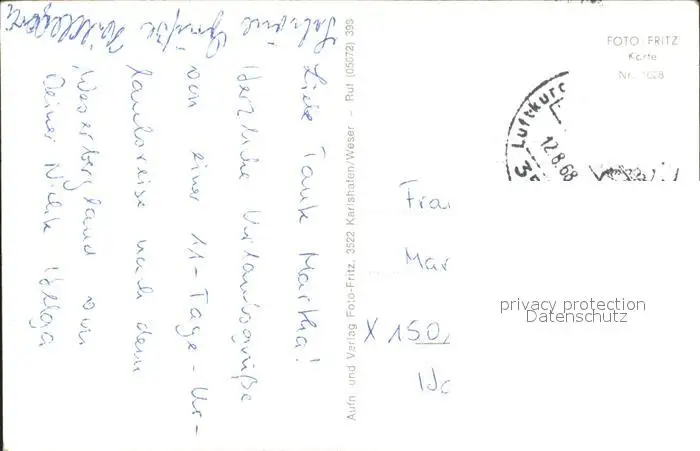 Liebe Tante Martha!
Herzliche Urlaubsgrüße
von einer 11-Tage-Ur-
laubsreise nach dem
Weserbergland von
Deiner Nichte Helga
Schöne Grüße
Aufn. und Verlag Foto-Fritz, 3522 Karlshafen/Weser - Ruf (05672) 399
FOTO-FRITZ
Karte
Nr. 1028
Luftkur
12.8.68
35
Frau
Mar
X 150
privacy protection
Datenschutz